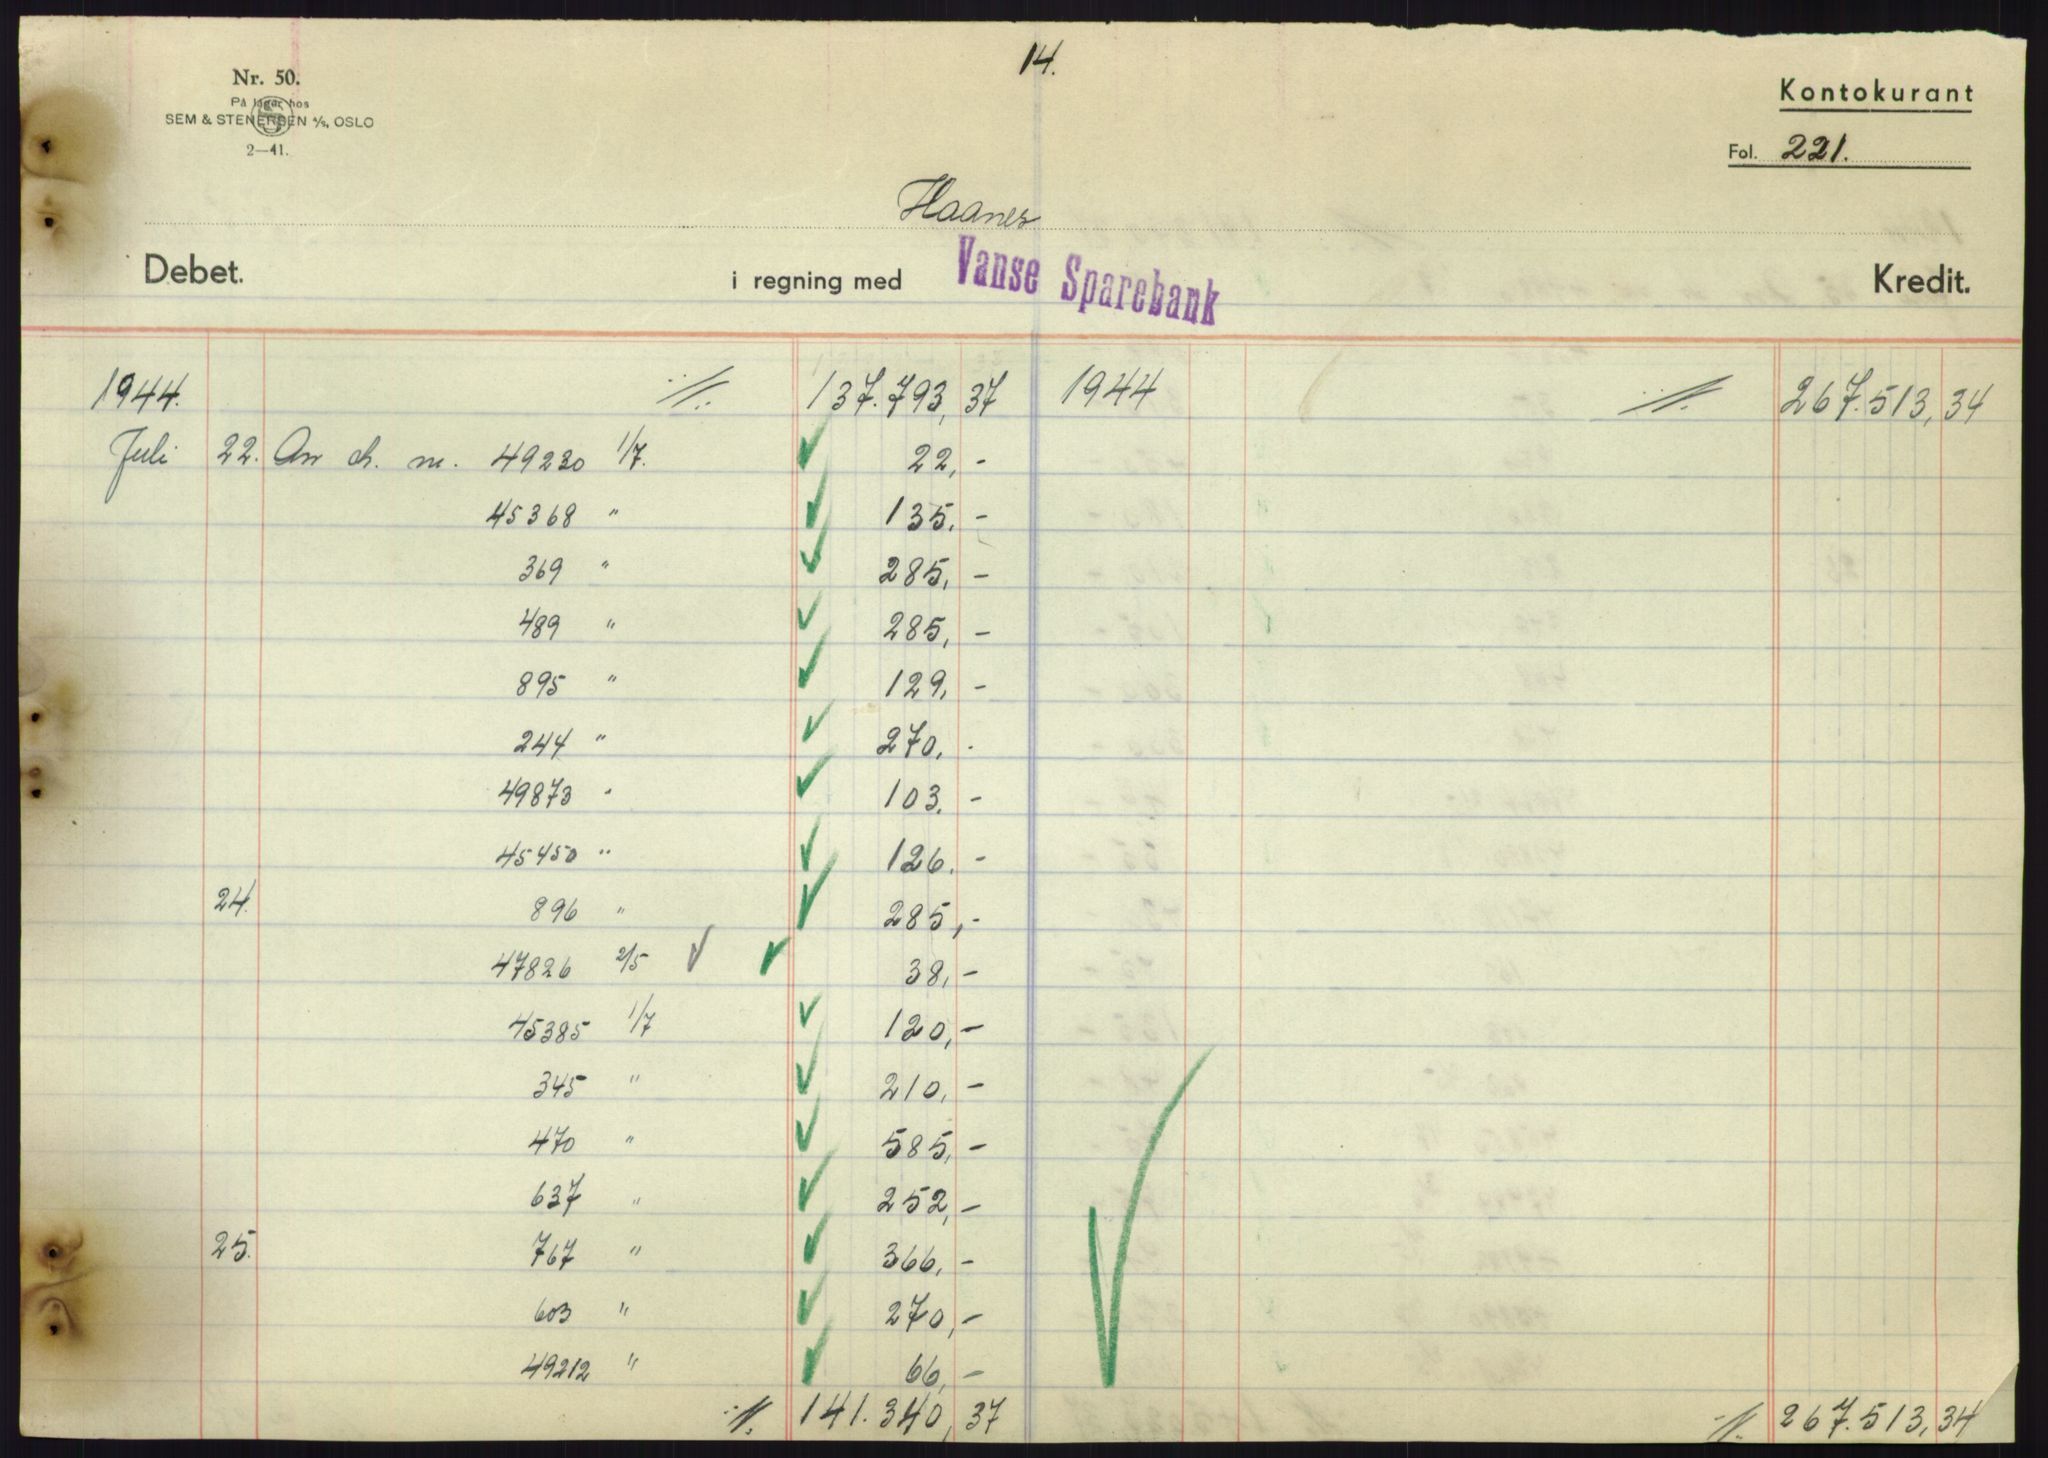 14.
Nr. 50.
På lager hos
SEM & STENERSEN A/S, OSLO
2—41.
Kontokurant
Fol. 221.
Haanes
Debet. i regning med Vanse Sparebank Kredit.
1944. 137.793,37 1944 267.513,34
Juli 22. An ch. nr. 49230 1/7. 22,-
45368 " 135,-
369 " 285,-
489 " 285,-
895 " 129,-
244 " 270,-
49873 " 103,-
45450 " 126,-
24. 896 " 285,-
47826 2/5 38,-
45385 1/7 120,-
345 " 210,-
470 " 585,-
637 " 252,-
25. 767 " 366,-
603 " 270,-
49212 " 66,-
141.340,37 267.513,34